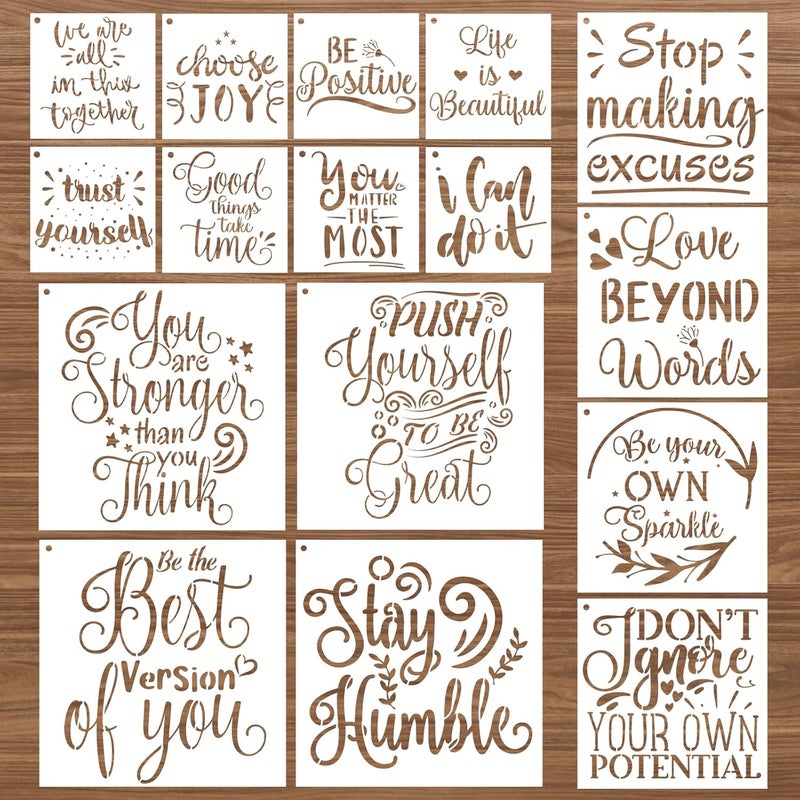 we are
all
in this
together
choose
JOY
BE
Positive
Life
is
Beautiful
Stop
making
excuses
trust
yourself
Good
things
take
time
You
MATTER
THE
MOST
i Can
do it
Love
BEYOND
Words
You
are
Stronger
than
you
Think
PUSH
Yourself
TO BE
Great
Be your
OWN
Sparkle
Be the
Best
Version
of you
Stay
Humble
DON'T
Ignore
YOUR OWN
POTENTIAL